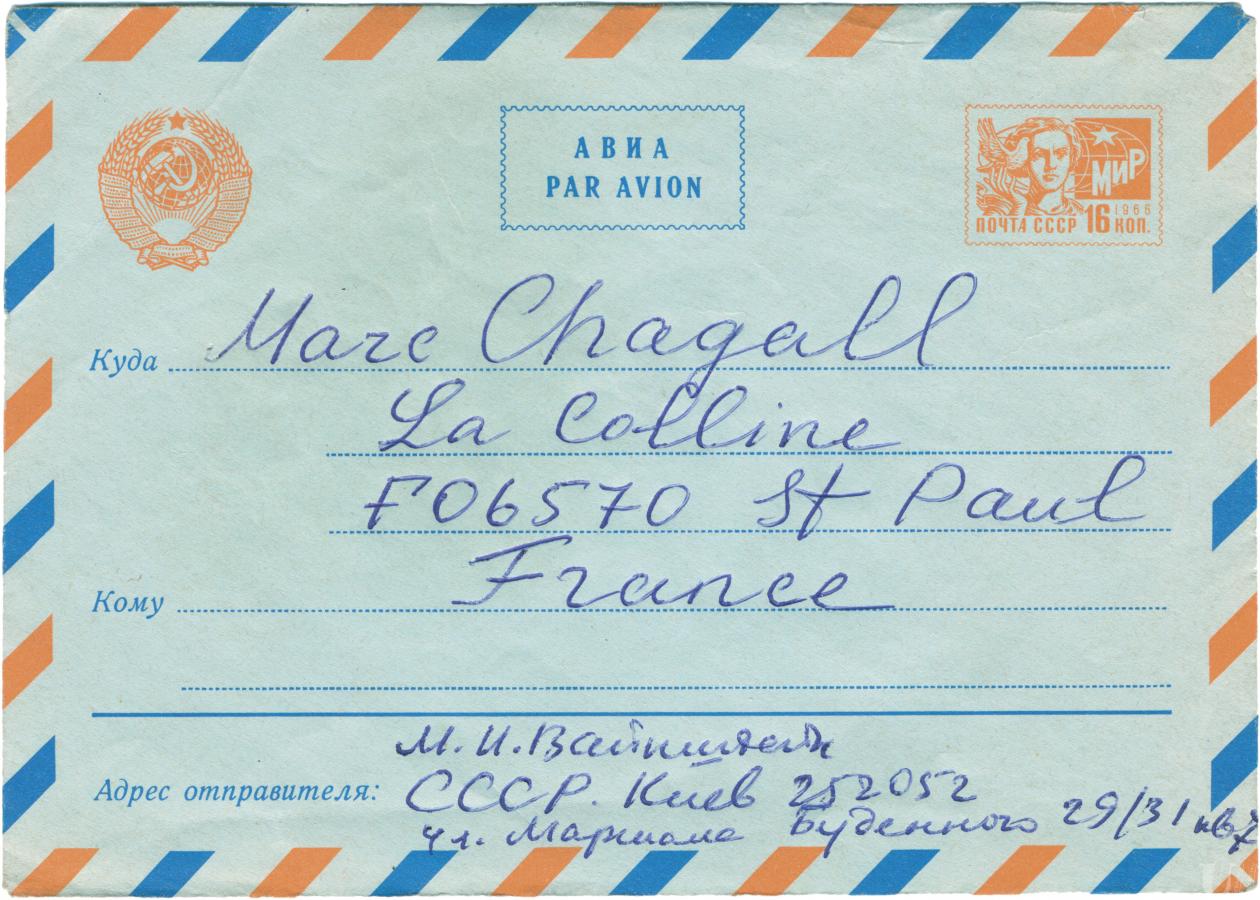 АВИА
PAR AVION
МИР
1966
ПОЧТА СССР 16 КОП.
Куда Marc Chagall
La Colline
F06570 St Paul
France
Кому
М. И. Вайнштейн
Адрес отправителя: СССР. Киев 252052
ул. Маршала Буденного 29/31 кв 7